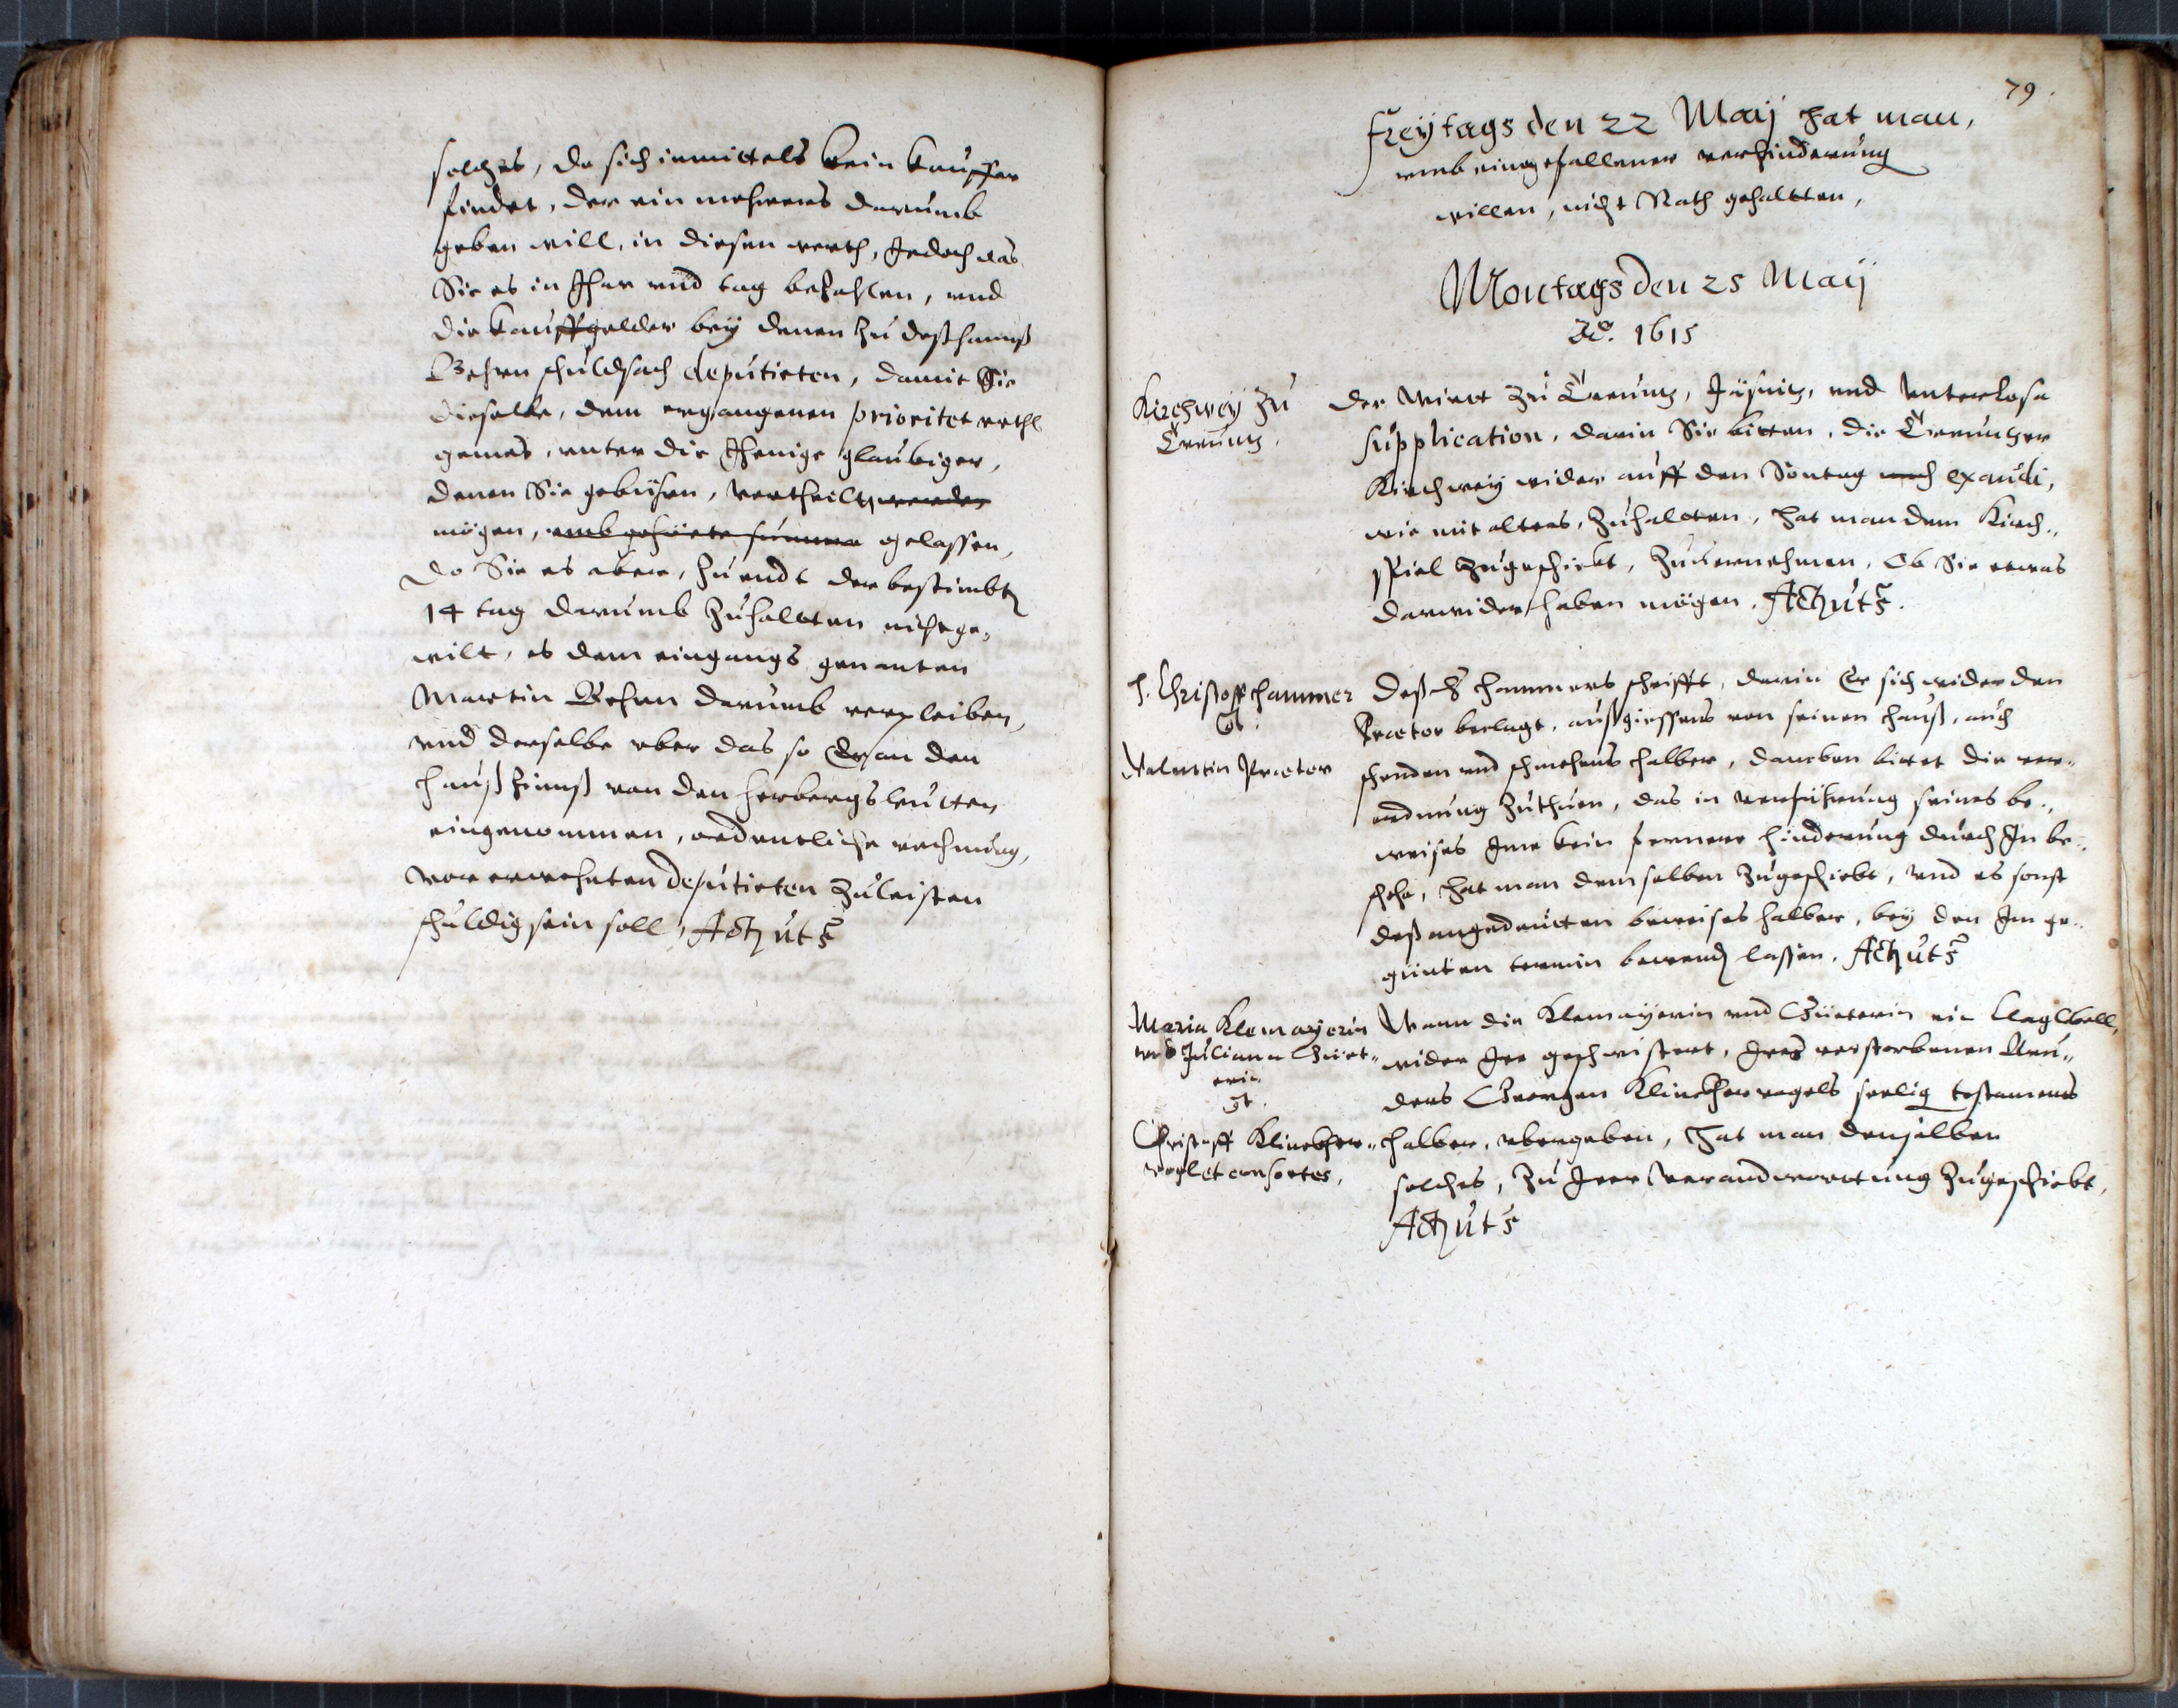 solches, da sich inmittels kein kauffer
findet, der ein mehrers darumb
geben will, in diesen werth, Jedoch das
Sie es in Jhar vnd tag bezahlen, vnd
die kauffgelder bey denen zu deß hannß
Behen schuldsach deputirten, damit Sie
dieselbe, dem ergangenen prioritet vrthl
gemeß, vnter die Jhenige glaubiger,
denen Sie gebüren, vertheiln werden
mögen, vmb gehörte summa gelassen,
Do Sie es aber, zu endt der bestimbtn
14 tag darumb zuhaltten nicht ge„
wilt, es dem eingangs genanten
Martin Behen darumb verpleiben,
vnd derselbe vber das so Er an den
Haußzinnß von den herbergsleutten
eingenommen, ordentliche rechnung,
vor erwehnten deputirten zuleisten
schuldig sein soll, Act ut s
79.
Freytags den 22 Maij hat man,
vmb eingefallener verhinderung
willen, nicht Rath gehaltten,
Montags den 25 Maij
Ao. 1615
Kirchwey zu
Creuntz.
Der Wirtt zu Creuntz, und Vnterlosa
supplication, darin Sie bitten, die Creuntzer
Kirchwey wider auff den Sontag nach exaudi,
wie mit alters, zuhaltten, hat man dem Kirch„
spiel zugeschickt, zuvernehmen, Ob Sie etwas
darwider haben mögen. Act ut s.
H. Christoff Hammer
Ct.
Valentin Praetor
Deß H Hammers schrifft, darin Er sich wider den
Praetor beclagt, außgiessens von seinen Hauß, auch
schenden vnd schmehens halber, daneben bittet die ver„
ordnung zuthuen, das in verführung seines be„
weises Jme kein fernere hinderung durch Jn be„
schehe, hat man demselben zugeschickt, vnd es sonst
deß angedeutten beweises halber, bey den Jm ge„
günten termin bewendn lassen. Act ut s
Maria Klemayerin
vnd Juliana Güet„
erin
Ct.
Christoff Klinckher„
vogl et consortes,
Wann die Klemayerin vnd Güeterin ein Clag
wider Jre geschwistert, Jres verstorbenen Bru„
ders Georgen Klinckhervogels seelig testaments
halber, vbergeben, Hat man denselben
solches, zu Jrer Verandwortung zugeschickt,
Act ut s